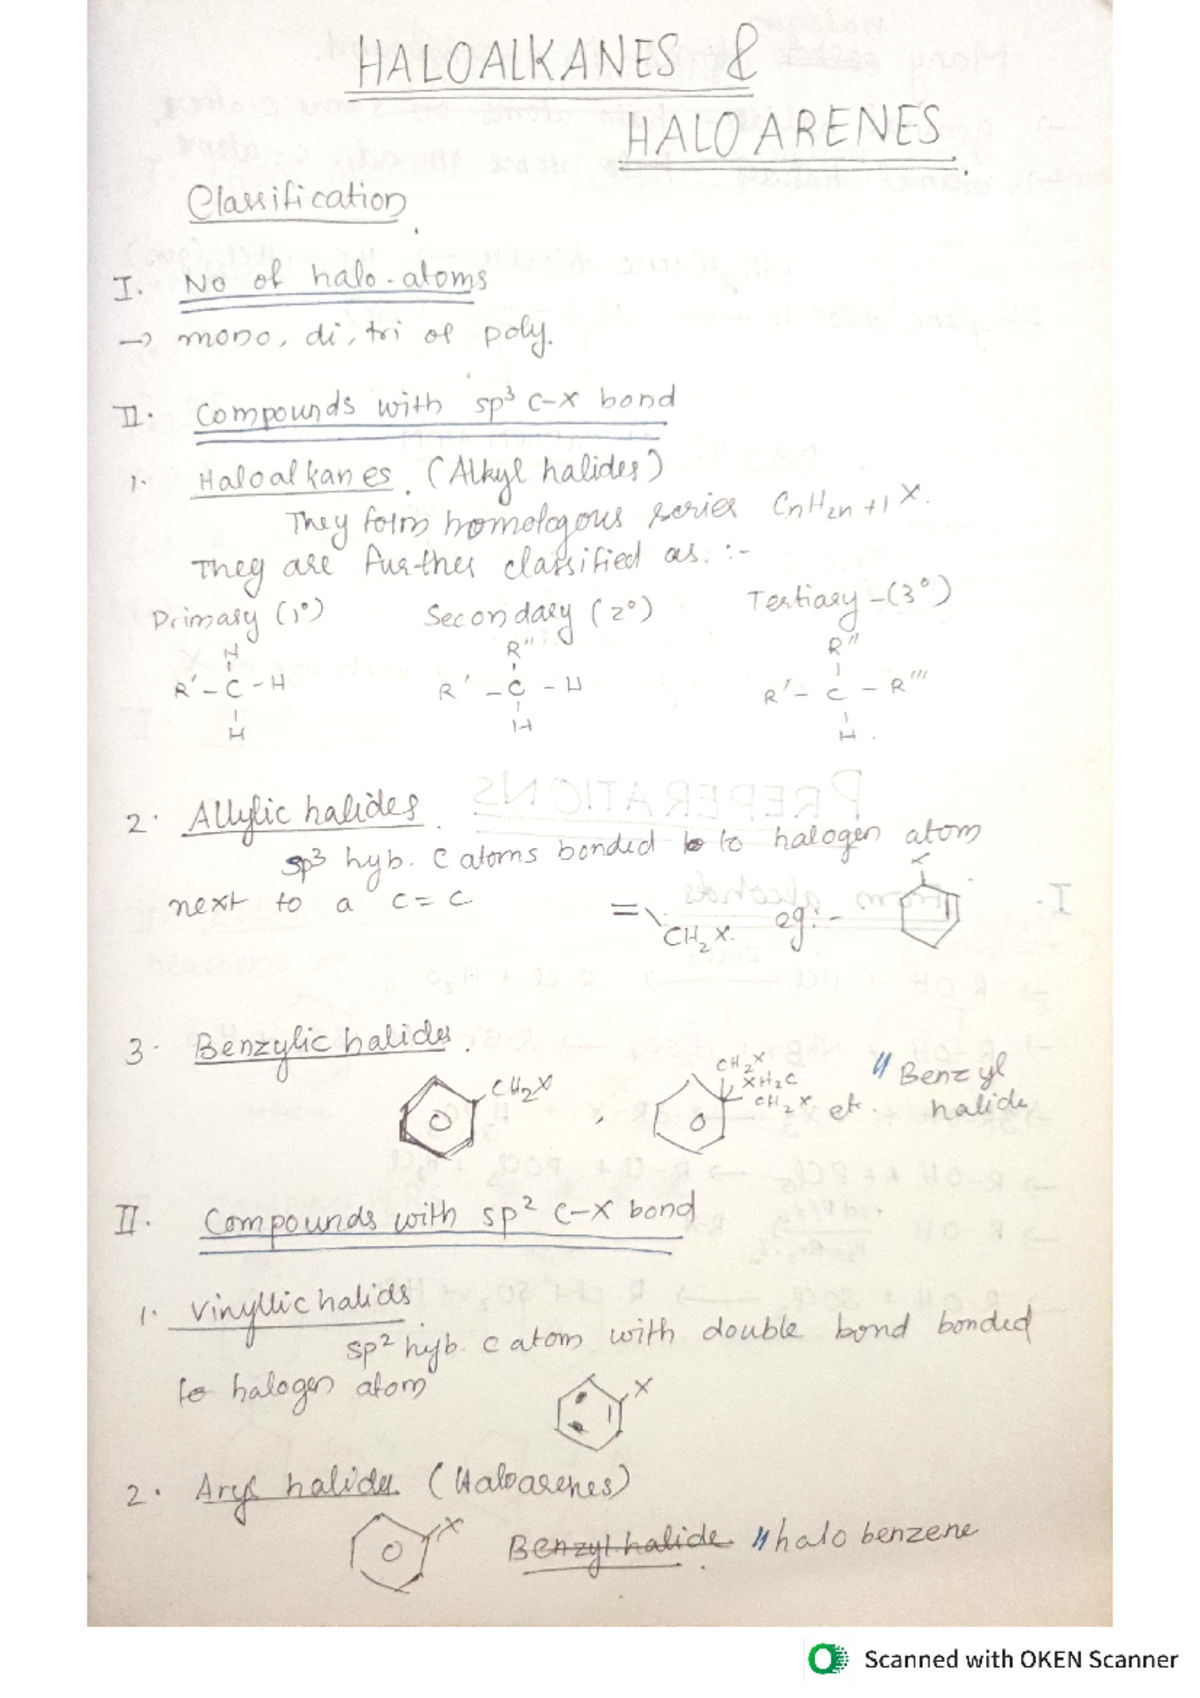 HALOALKANES &
HALOARENES.
Classification.
I. No of halo-atoms
→ mono, di, tri or poly.
II. Compounds with sp³ C-X bond
1. Haloalkanes. (Alkyl halides)
They form homologous series CnH2n+1 X.
They are further classified as. :-
Primary (1°) Secondary (2°) Tertiary -(3°)
H R'' R''
R' - C - H R' - C - H R' - C - R'''
H H H.
2. Allylic halides.
sp³ hyb. C atoms bonded to to halogen atom
next to a C=C
= \ CH₂X. eg:- X
3. Benzylic halides.
CH₂X , CH₂X XH₂C CH₂X etc. " Benzyl
halide
II. Compounds with sp² C-X bond
1. Vinyllic halids.
sp² hyb. C atom with double bond bonded
to halogen atom X
2. Aryl halides. (Haloarenes)
X Benzyl halide. "halo benzene
Scanned with OKEN Scanner